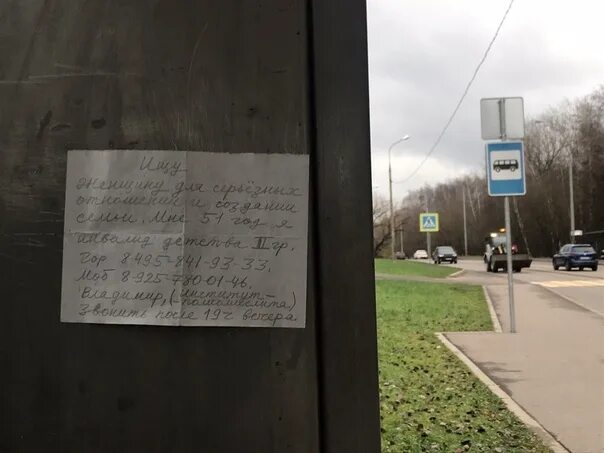 Ищу
женщину для серьёзных
отношений и создании
семьи. Мне 51 год я
инвалид детства III гр.
Гор 8495-841-93-33,
Моб 8-925-780-01-46,
Владимир, (институт-
Звонить после 19ч вечера